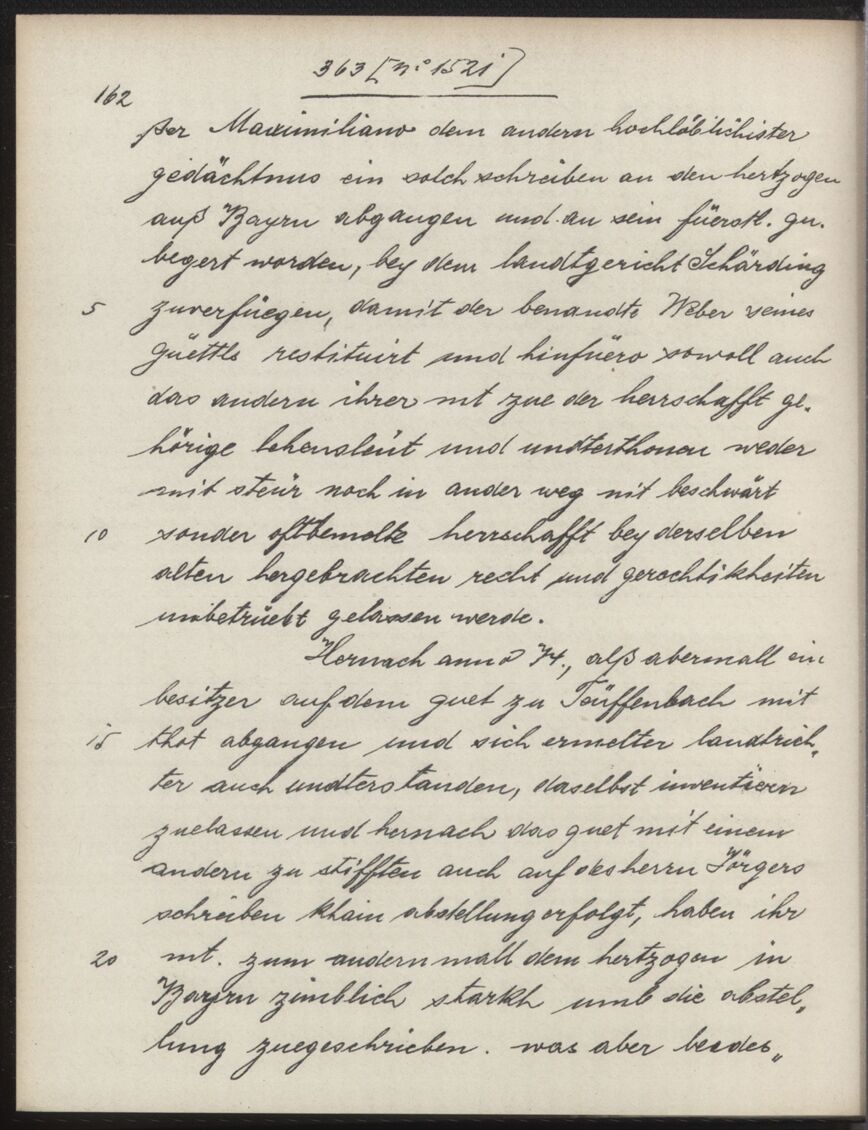 363 [nº 152i]
162
ßer Maximiliano dem andern hochlöblichister
gedächtnus ein solch schreiben an den hertzogen
auß Bayrn abgangen und an sein füerstl. gn.
begert worden, bey dem landtgericht Schärding
5 zuverfüegen, damit der benandte Weber seines
güettls restituirt und hinfüero sowoll auch
das andern ihrer mt zue der herrschafft ge„
hörige lehensleüt und undterthonen weder
mit steür noch in ander weg nit beschwärt
10 sonder oftbemelte herrschafft bey derselben
alten hergebrachten recht und gerechtikheiten
unbetrüebt gelassen werde.
Hernach anno 74., alß abermall ein
besitzer auf dem guet zu Täuffenbach mit
15 thot abgangen und sich ermelter landtrich„
ter auch undterstanden, daselbst inventiern
zuelassen und hernach das guet mit einem
andern zu stifften auch auf des herrn Jörgers
schreiben khain abstellung erfolgt, haben ihr
20 mt. zum andern mall dem hertzogen in
Bayrn zimblich starkh umb die abstel„
lung zuegeschrieben. was aber beedes„